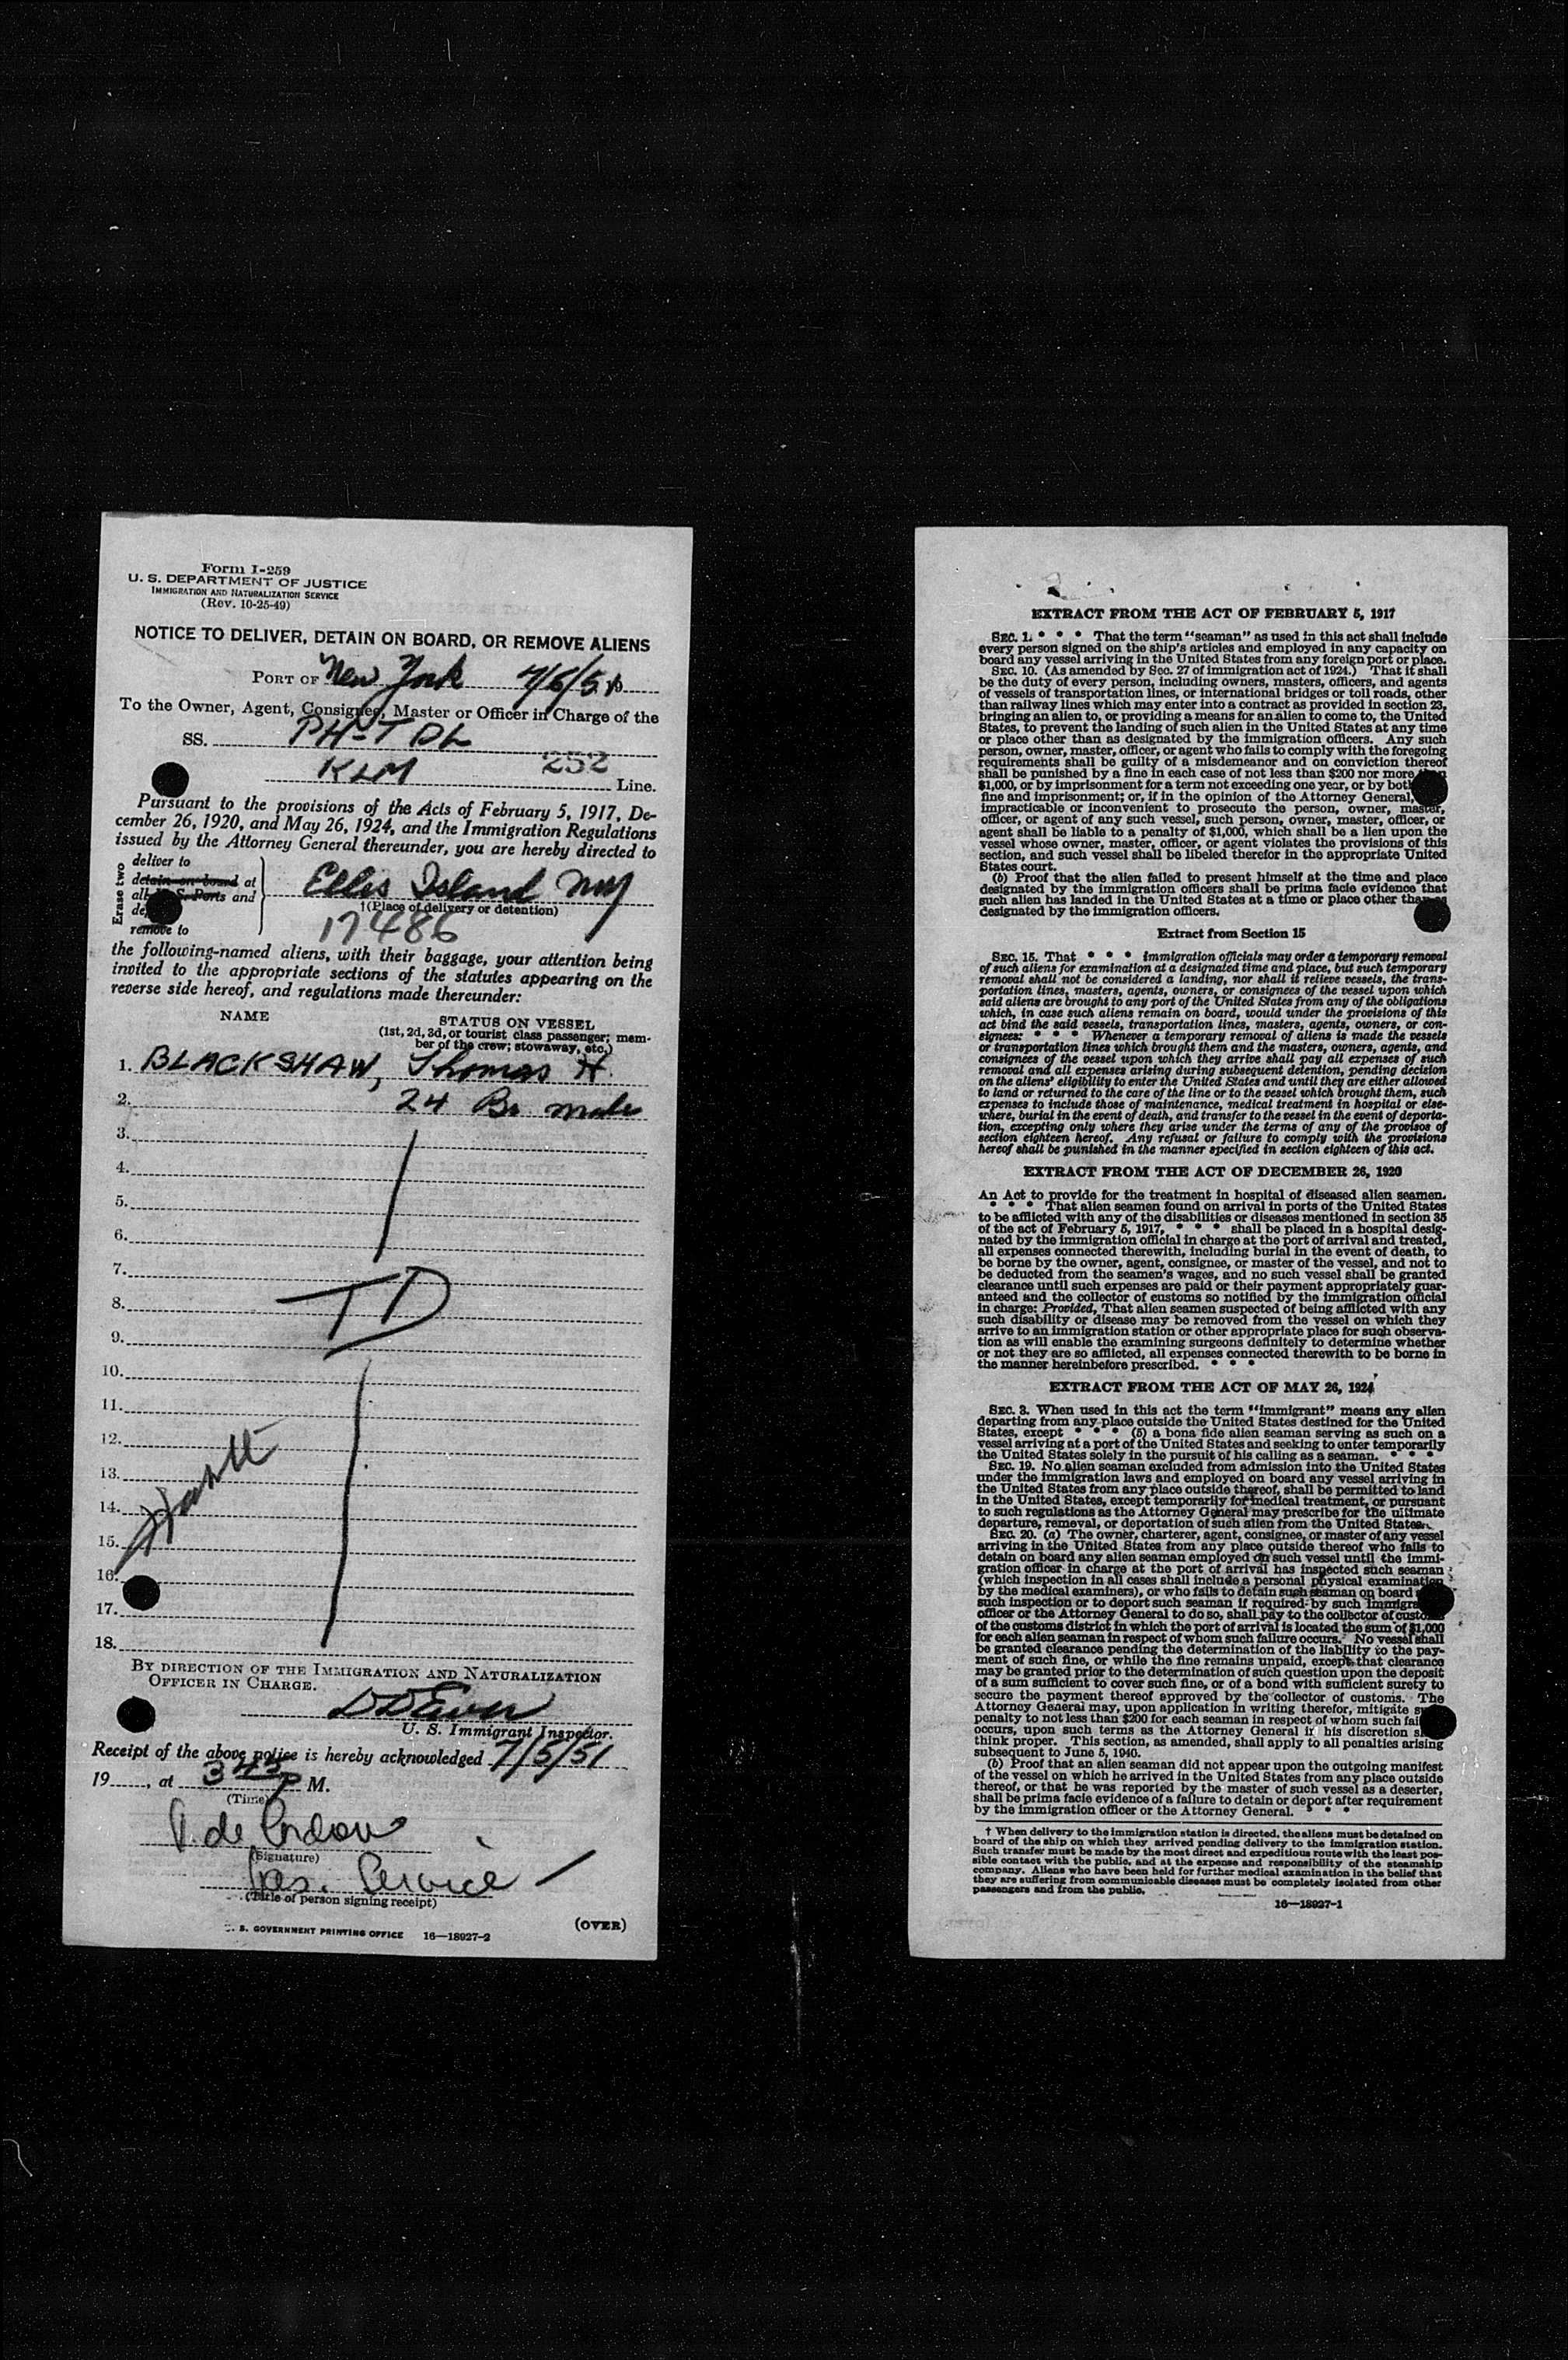 Form I-259
U. S. DEPARTMENT OF JUSTICE
IMMIGRATION AND NATURALIZATION SERVICE
(Rev. 10-25-49)
NOTICE TO DELIVER, DETAIN ON BOARD, OR REMOVE ALIENS
PORT OF New York 7/5/51
To the Owner, Agent, Consignee, Master or Officer in Charge of the
SS. PH-TDL
KLM 252 Line.
Pursuant to the provisions of the Acts of February 5, 1917, De-
cember 26, 1920, and May 26, 1924, and the Immigration Regulations
issued by the Attorney General thereunder, you are hereby directed to
Erase two
deliver to
detain on board at
all U. S. Ports and
remove to
Ellis Island NY
†(Place of delivery or detention)
17486
the following-named aliens, with their baggage, your attention being
invited to the appropriate sections of the statutes appearing on the
reverse side hereof, and regulations made thereunder:
NAME STATUS ON VESSEL
(1st, 2d, 3d, or tourist class passenger; mem-
ber of the crew; stowaway, etc.)
1. BLACKSHAW, Thomas H.
2. 24 Br male
3.
4.
5.
6.
7.
8. TD
9.
10.
11.
12.
13.
14.
15.
16.
17.
18.
BY DIRECTION OF THE IMMIGRATION AND NATURALIZATION
OFFICER IN CHARGE.
U. S. Immigrant Inspector.
Receipt of the above notice is hereby acknowledged 7/5/51
19___, at 3 45 P M.
(Time)
(Signature)
Pas. Service
(Title of person signing receipt)
U. S. GOVERNMENT PRINTING OFFICE 16—18927-2
(OVER)
EXTRACT FROM THE ACT OF FEBRUARY 5, 1917
SEC. 1. * * * That the term "seaman" as used in this act shall include
every person signed on the ship's articles and employed in any capacity on
board any vessel arriving in the United States from any foreign port or place.
SEC. 10. (As amended by Sec. 27 of immigration act of 1924.) That it shall
be the duty of every person, including owners, masters, officers, and agents
of vessels of transportation lines, or international bridges or toll roads, other
than railway lines which may enter into a contract as provided in section 23,
bringing an alien to, or providing a means for an alien to come to, the United
States, to prevent the landing of such alien in the United States at any time
or place other than as designated by the immigration officers. Any such
person, owner, master, officer, or agent who fails to comply with the foregoing
requirements shall be guilty of a misdemeanor and on conviction thereof
shall be punished by a fine in each case of not less than $200 nor more than
$1,000, or by imprisonment for a term not exceeding one year, or by both
fine and imprisonment; or, if in the opinion of the Attorney General,
impracticable or inconvenient to prosecute the person, owner, master,
officer, or agent of any such vessel, such person, owner, master, officer, or
agent shall be liable to a penalty of $1,000, which shall be a lien upon the
vessel whose owner, master, officer, or agent violates the provisions of this
section, and such vessel shall be libeled therefor in the appropriate United
States court.
(b) Proof that the alien failed to present himself at the time and place
designated by the immigration officers shall be prima facie evidence that
such alien has landed in the United States at a time or place other than as
designated by the immigration officers.
Extract from Section 15
SEC. 15. That * * * immigration officials may order a temporary removal
of such aliens for examination at a designated time and place, but such temporary
removal shall not be considered a landing, nor shall it relieve vessels, the trans-
portation lines, masters, agents, owners, or consignees of the vessel upon which
said aliens are brought to any port of the United States from any of the obligations
which, in case such aliens remain on board, would under the provisions of this
act bind the said vessels, transportation lines, masters, agents, owners, or con-
signees: * * * Whenever a temporary removal of aliens is made the vessels
or transportation lines which brought them and the masters, owners, agents, and
consignees of the vessel upon which they arrive shall pay all expenses of such
removal and all expenses arising during subsequent detention, pending decision
on the aliens' eligibility to enter the United States and until they are either allowed
to land or returned to the care of the line or to the vessel which brought them, such
expenses to include those of maintenance, medical treatment in hospital or else-
where, burial in the event of death, and transfer to the vessel in the event of deporta-
tion, excepting only where they arise under the terms of any of the provisos of
section eighteen hereof. Any refusal or failure to comply with the provisions
hereof shall be punished in the manner specified in section eighteen of this act.
EXTRACT FROM THE ACT OF DECEMBER 26, 1920
An Act to provide for the treatment in hospital of diseased alien seamen.
* * * That alien seamen found on arrival in ports of the United States
to be afflicted with any of the disabilities or diseases mentioned in section 35
of the act of February 5, 1917, * * * shall be placed in a hospital desig-
nated by the immigration official in charge at the port of arrival and treated,
all expenses connected therewith, including burial in the event of death, to
be borne by the owner, agent, consignee, or master of the vessel, and not to
be deducted from the seamen's wages, and no such vessel shall be granted
clearance until such expenses are paid or their payment appropriately guar-
anteed and the collector of customs so notified by the immigration official
in charge: Provided, That alien seamen suspected of being afflicted with any
such disability or disease may be removed from the vessel on which they
arrive to an immigration station or other appropriate place for such observa-
tion as will enable the examining surgeons definitely to determine whether
or not they are so afflicted, all expenses connected therewith to be borne in
the manner hereinbefore prescribed. * * *
EXTRACT FROM THE ACT OF MAY 26, 1924
SEC. 3. When used in this act the term "immigrant" means any alien
departing from any place outside the United States destined for the United
States, except * * * (5) a bona fide alien seaman serving as such on a
vessel arriving at a port of the United States and seeking to enter temporarily
the United States solely in the pursuit of his calling as a seaman. * * *
SEC. 19. No alien seaman excluded from admission into the United States
under the immigration laws and employed on board any vessel arriving in
the United States from any place outside thereof, shall be permitted to land
in the United States, except temporarily for medical treatment, or pursuant
to such regulations as the Attorney General may prescribe for the ultimate
departure, removal, or deportation of such alien from the United States.
SEC. 20. (a) The owner, charterer, agent, consignee, or master of any vessel
arriving in the United States from any place outside thereof who fails to
detain on board any alien seaman employed on such vessel until the immi-
gration officer in charge at the port of arrival has inspected such seaman
(which inspection in all cases shall include a personal physical examination
by the medical examiners), or who fails to detain such seaman on board
such inspection or to deport such seaman if required by such immigra
officer or the Attorney General to do so, shall pay to the collector of customs
of the customs district in which the port of arrival is located the sum of $1,000
for each alien seaman in respect of whom such failure occurs. No vessel shall
be granted clearance pending the determination of the liability to the pay-
ment of such fine, or while the fine remains unpaid, except that clearance
may be granted prior to the determination of such question upon the deposit
of a sum sufficient to cover such fine, or of a bond with sufficient surety to
secure the payment thereof approved by the collector of customs. The
Attorney General may, upon application in writing therefor, mitigate
penalty to not less than $200 for each seaman in respect of whom such fai
occurs, upon such terms as the Attorney General in his discretion
think proper. This section, as amended, shall apply to all penalties arising
subsequent to June 5, 1940.
(b) Proof that an alien seaman did not appear upon the outgoing manifest
of the vessel on which he arrived in the United States from any place outside
thereof, or that he was reported by the master of such vessel as a deserter,
shall be prima facie evidence of a failure to detain or deport after requirement
by the immigration officer or the Attorney General. * * *
† When delivery to the immigration station is directed, the aliens must be detained on
board of the ship on which they arrived pending delivery to the immigration station.
Such transfer must be made by the most direct and expeditious route with the least pos-
sible contact with the public, and at the expense and responsibility of the steamship
company. Aliens who have been held for further medical examination in the belief that
they are suffering from communicable diseases must be completely isolated from other
passengers and from the public.
16—18927-1